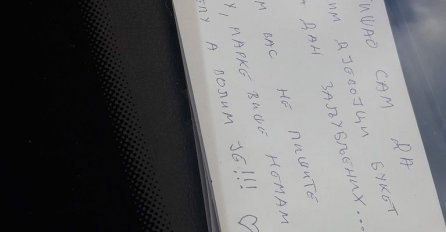 ИШАО САМ ДА
ИМ ДЈЕВОЈЦИ БУКЕТ
ДАН ЗАЉУБЉЕНИХ...
М ВАС НЕ ПИШИТЕ
, МАРКЕ ВИШЕ НЕМАМ
ЕПУ А ВОЛИМ ЈЕ!!!